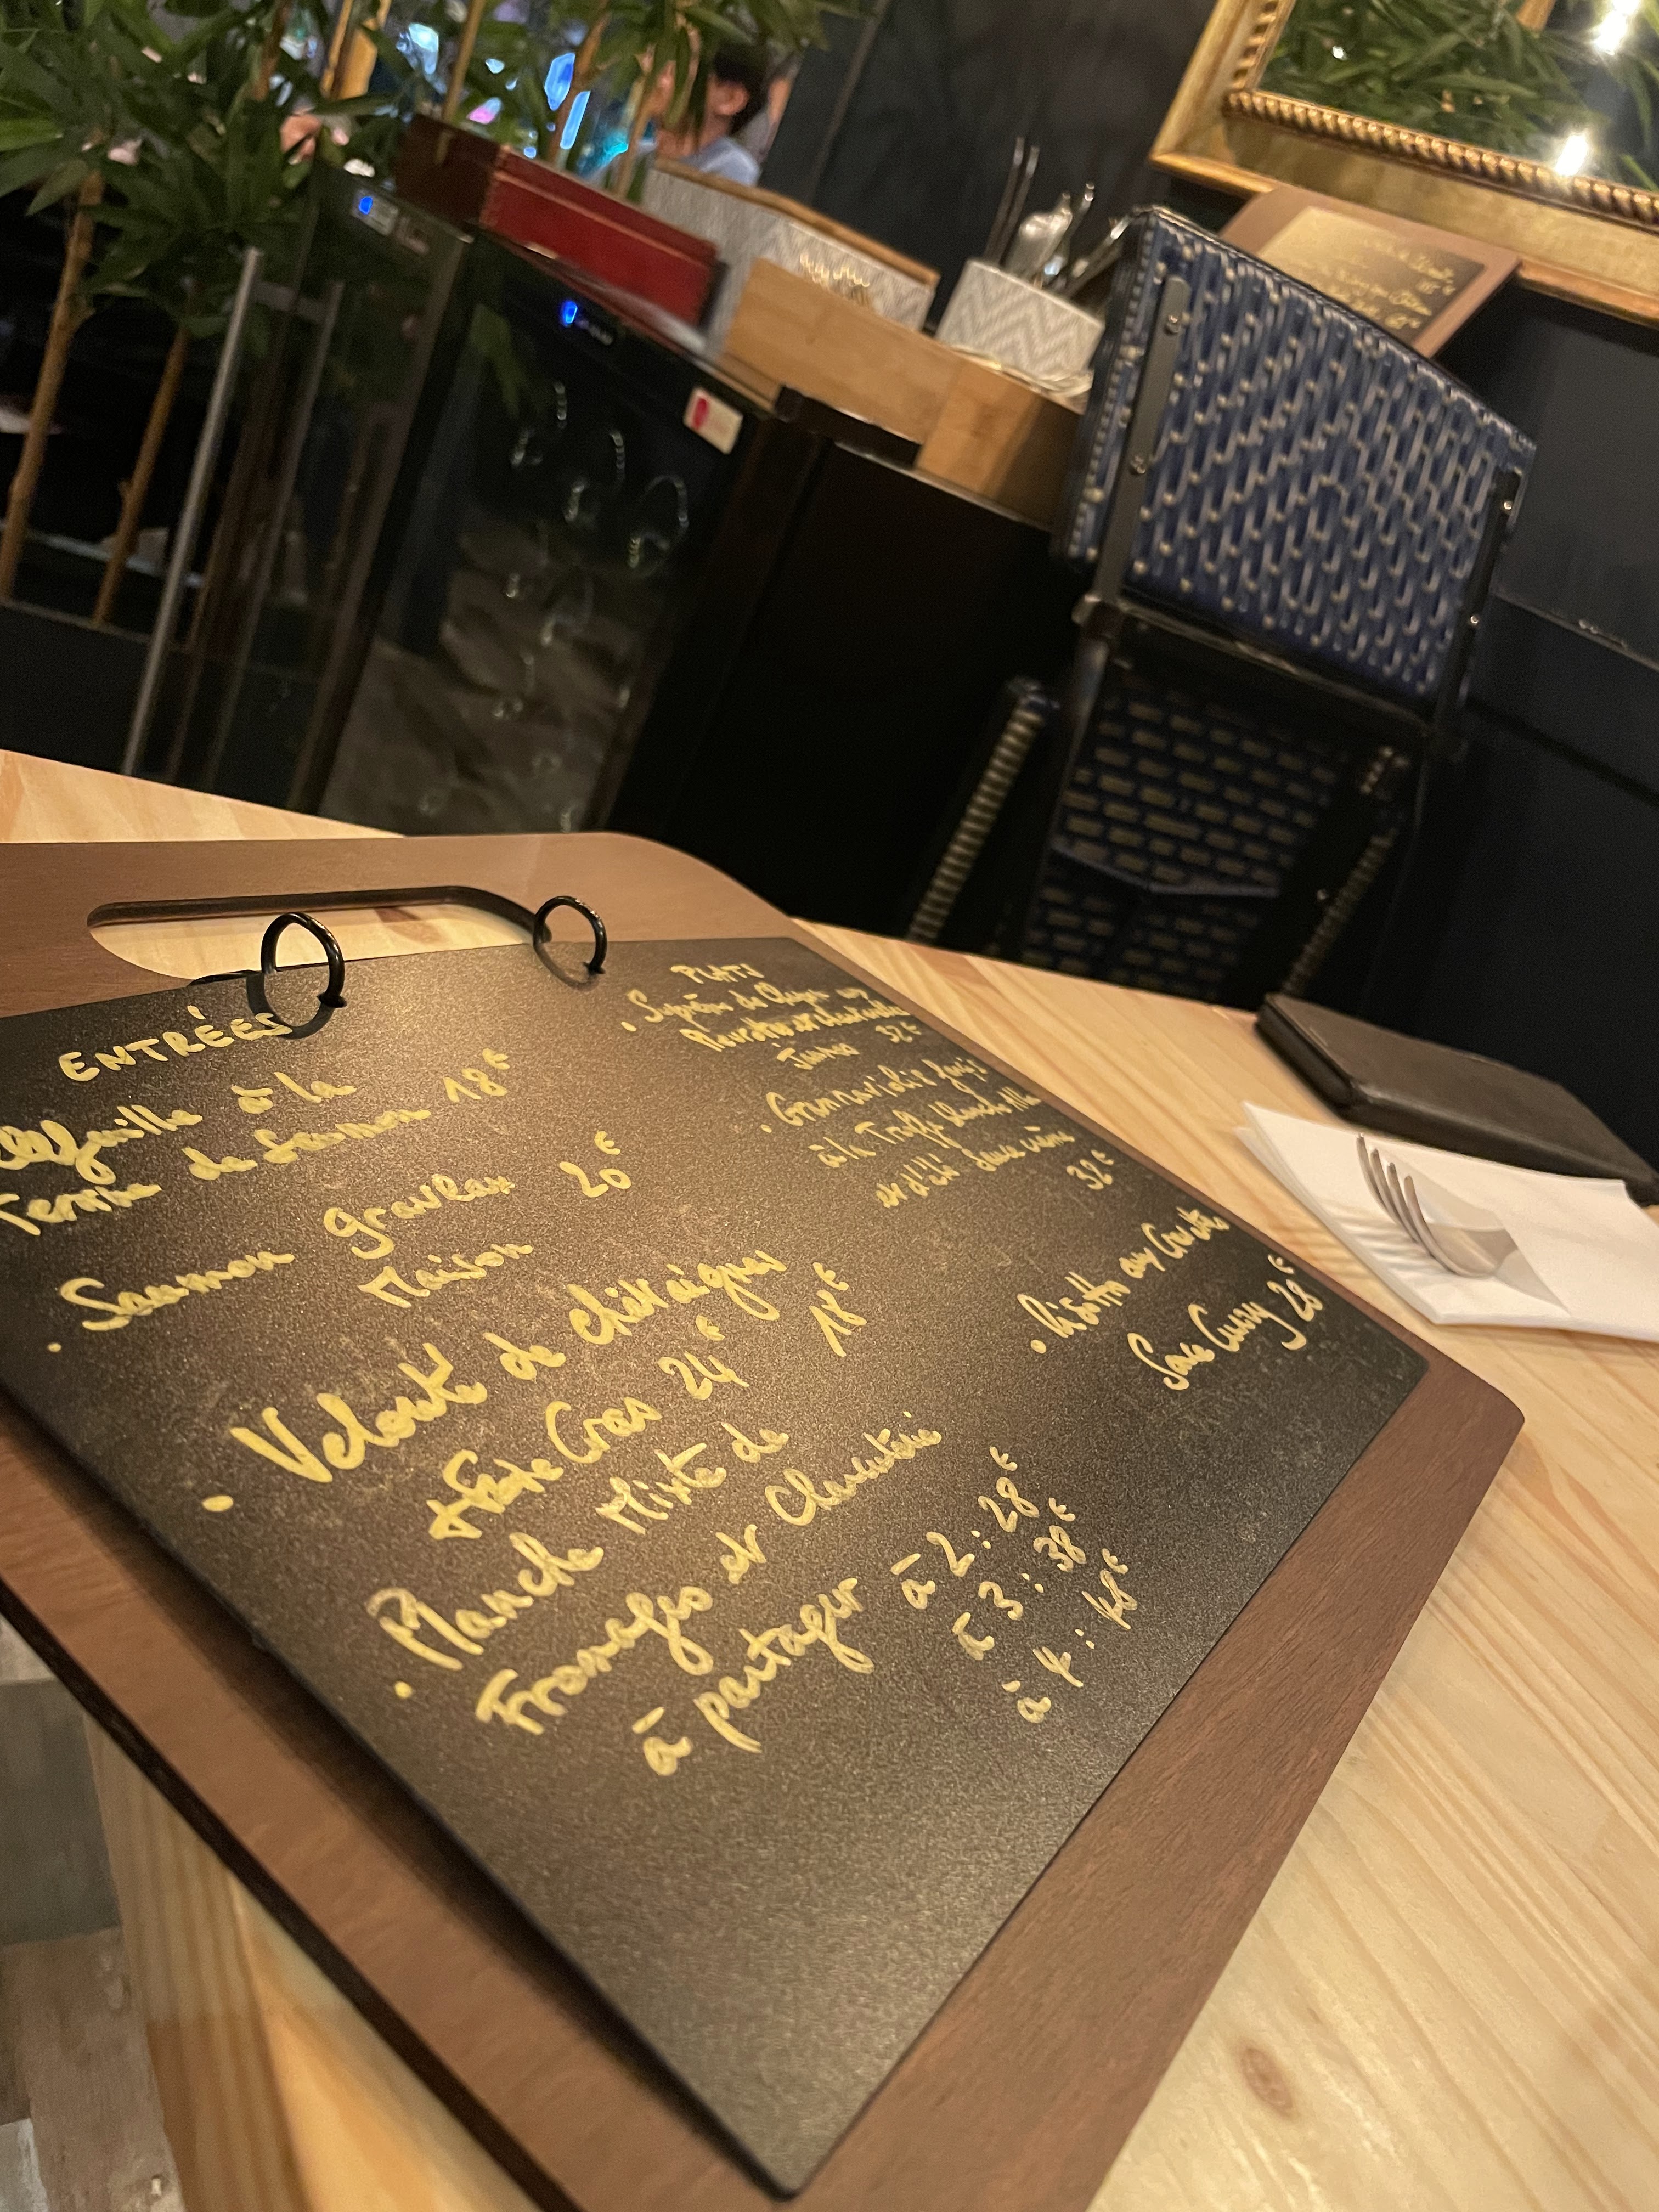 ENTRÉES
à la
Terrine de Saumon 18€
. Saumon gravlax 20€
Maison
. Velouté de châtaignes 18€
+ Foie Gras 24€
. Planche Mixte de
Fromages et Charcuterie
à partager à 2 : 28€
à 3 : 38€
à 4 : 48€
PLATS
. Suprême de Chapon aux
Pleurotes et
32€
.
à la Truffe blanche
et d'été Sauce crème
32€
. Risotto aux Crevettes
Sauce Curry 28€